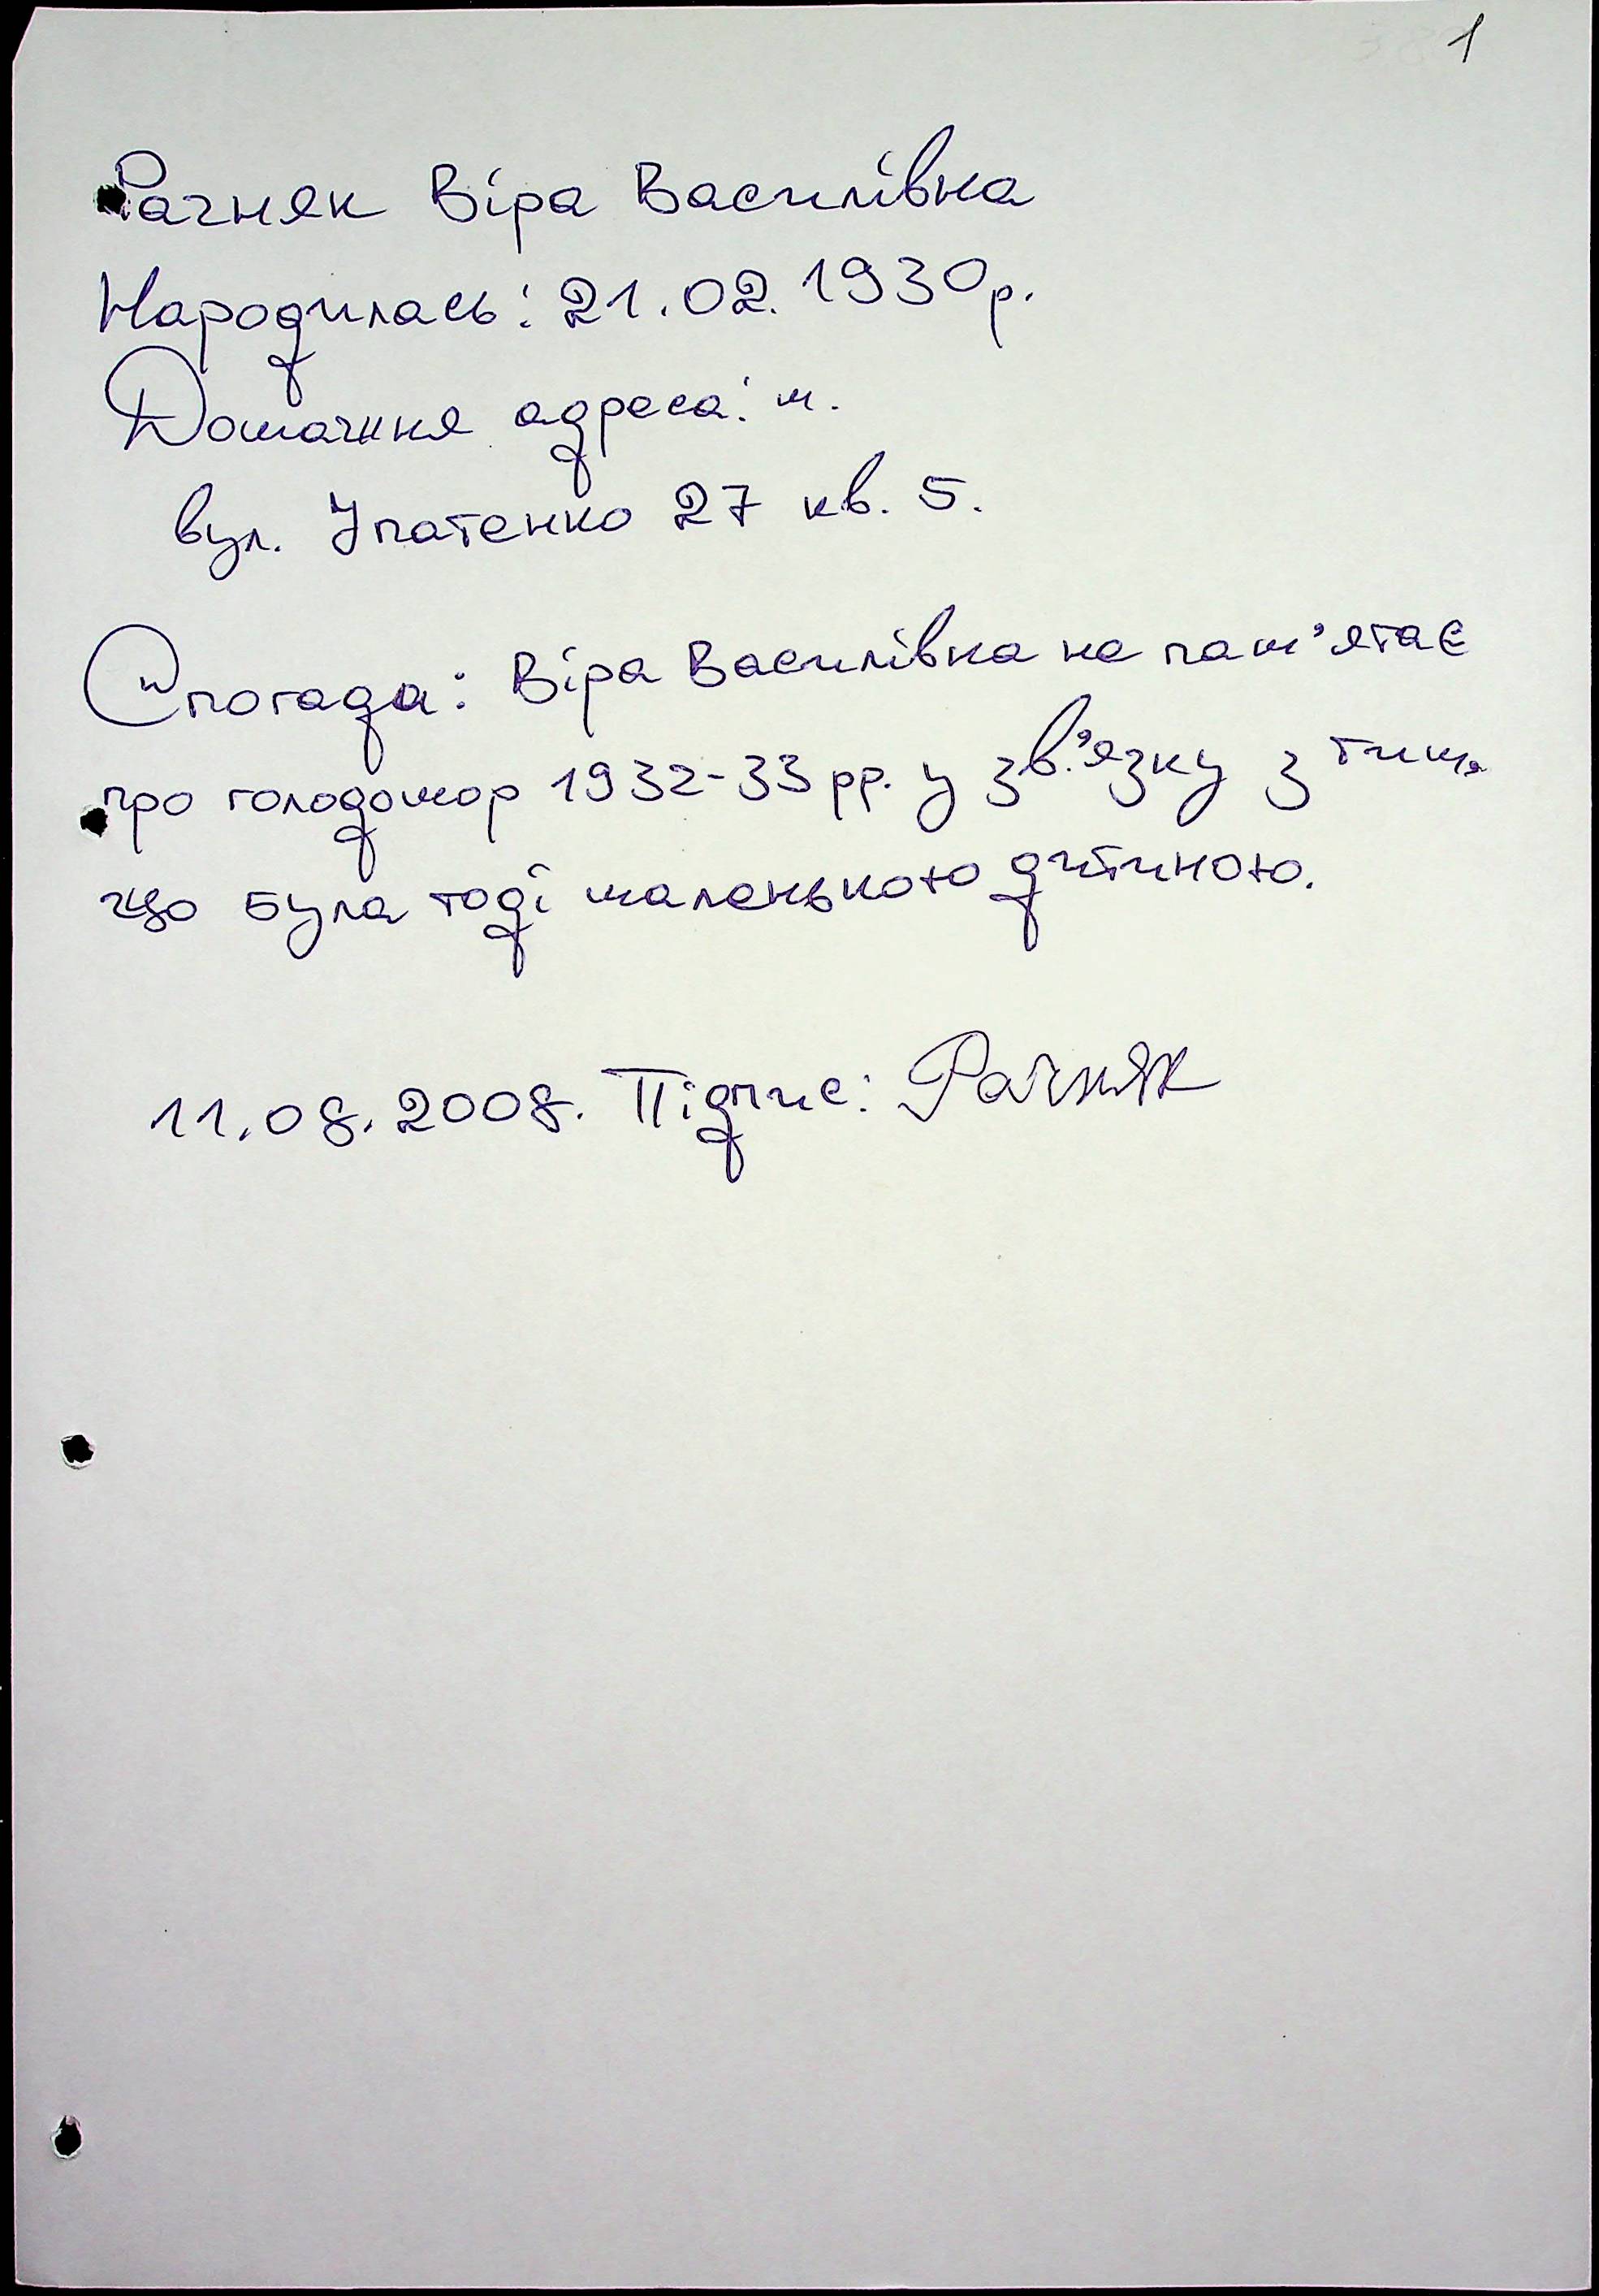 1
Рачняк Віра Василівна
Народилась: 21.02.1930р.
Домашня адреса: м.
вул. Упатенко 27 кв. 5.
Спогада: Віра Василівна не пам'ятає
про голодомор 1932-33 рр. у зв'язку з тим,
що була тоді маленькою дитиною.
11.08.2008. Підпис: Рачняк